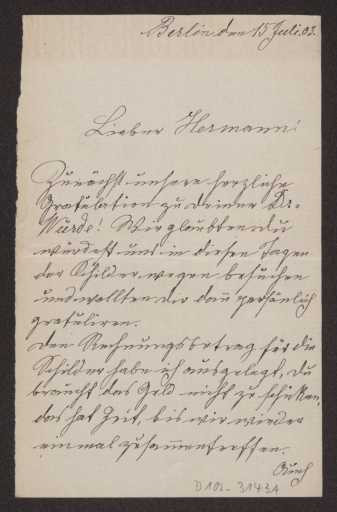 Berlin den 15 Juli. 03.
Lieber Hermann!
Zunächst unsere herzliche
Gratulation zu Deiner Dr.-
Würde! Wir glaubten du
würdest uns in diesen Tagen
der Schilder wegen besuchen
und wollten dir dann persönlich
gratuliren.
Den Rechnungsbetrag für die
Schilder habe ich ausgelegt, du
brauchst das Geld nicht zu schicken,
das hat Zeit, bis wir wieder
einmal zusammentreffen.
Auch
D 102-31431